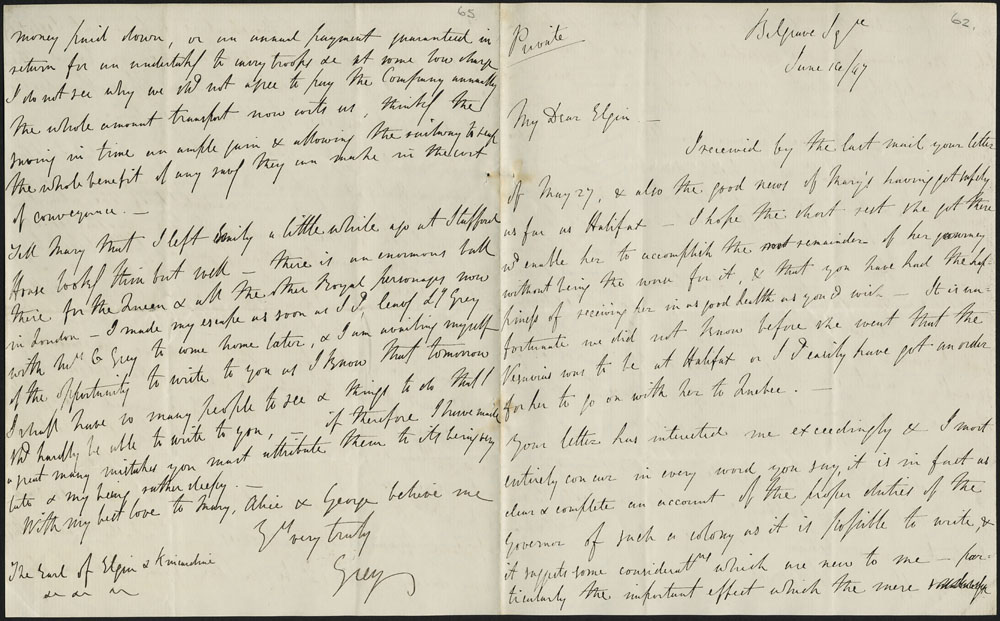 62.
Private
Belgrave Sqre
June 16/47
My Dear Elgin —
I received by the last mail your letter
of May 27, & also the good news of Mary's having got safely
as far as Halifax — I hope the short rest she got there
wd enable her to accomplish the remainder of her journey
without being the worse for it, & that you have had the hap-
piness of receiving her in as good health as you wd wish — It is un-
fortunate we did not know before she went that the
Vesuvius was to be at Halifax or I cd easily have got an order
for her to go on with her to Quebec. —
Your letter has interested me exceedingly & I most
entirely concur in every word you say, it is in fact as
clear & complete an account of the proper duties of the
Governor of such a colony as it is possible to write, &
it suggests some consideratns which are new to me — par-
ticularly the important effect which the mere
65
money paid down, or an annual payment guaranteed in
return for an undertakg to carry troops &c at some low charge
I do not see why we shd not agree to pay the Company annually
the whole amount transport now costs us, thinkg the
saving in time an ample gain & allowing the railway to reap
the whole benefit of any savg they can make in the cost
of conveyance. —
Tell Mary that I left Emily a little while ago at Stafford
House lookg thin but well — there is an enormous ball
there for the Queen & all the other Royal personages now
in London — I made my escape as soon as I cd, leavg Ly Grey
with Mrs G Grey to come home later, & I am availing myself
of the opportunity to write to you as I know that tomorrow
I shall have so many people to see & things to do that I
shd hardly be able to write to you, — if therefore I have made
a great many mistakes you must attribute them to its being very
late & my being rather sleepy. —
With my best love to Mary, Alice & George believe me
Yrs very truly
Grey
The Earl of Elgin & Kincardine
&c &c &c